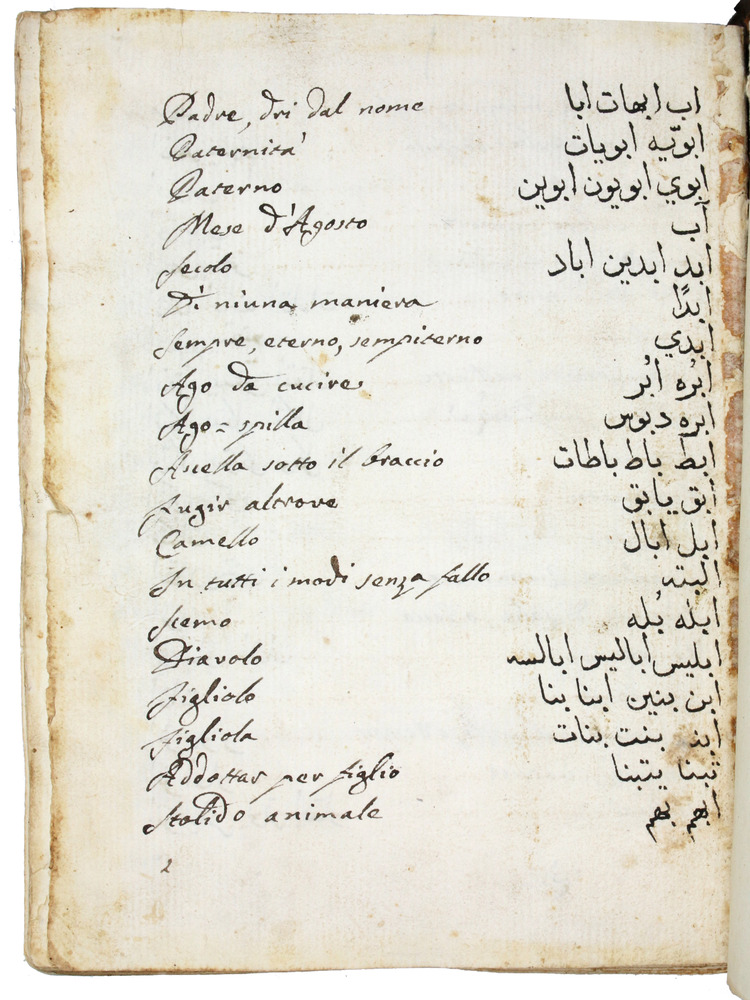 Padre, dri dal nome اب ابهات ابا
Paternità ابوّيه ابويات
Paterno ابوي ابويون ابوين
Mese d'Agosto آب
Secolo ابد ابدين اباد
Di niuna maniera ابدًا
Sempre, eterno, sempiterno ابدي
Ago da cucire ابُره اُبُر
Ago = spilla ابره دبوس
Ascella sotto il braccio ابط باط باطات
Fugir altrove ابق يابق
Camello ابل ابال
In tutti i modi senza fallo البته
Scemo ابله بُله
Diavolo ابليس اباليس ابالسه
Figliolo ابن بنين ابنا بنا
Figliola بنت بنات
Addottar per figlio تبنا يتبنا
Stolido animale ابهم بهم